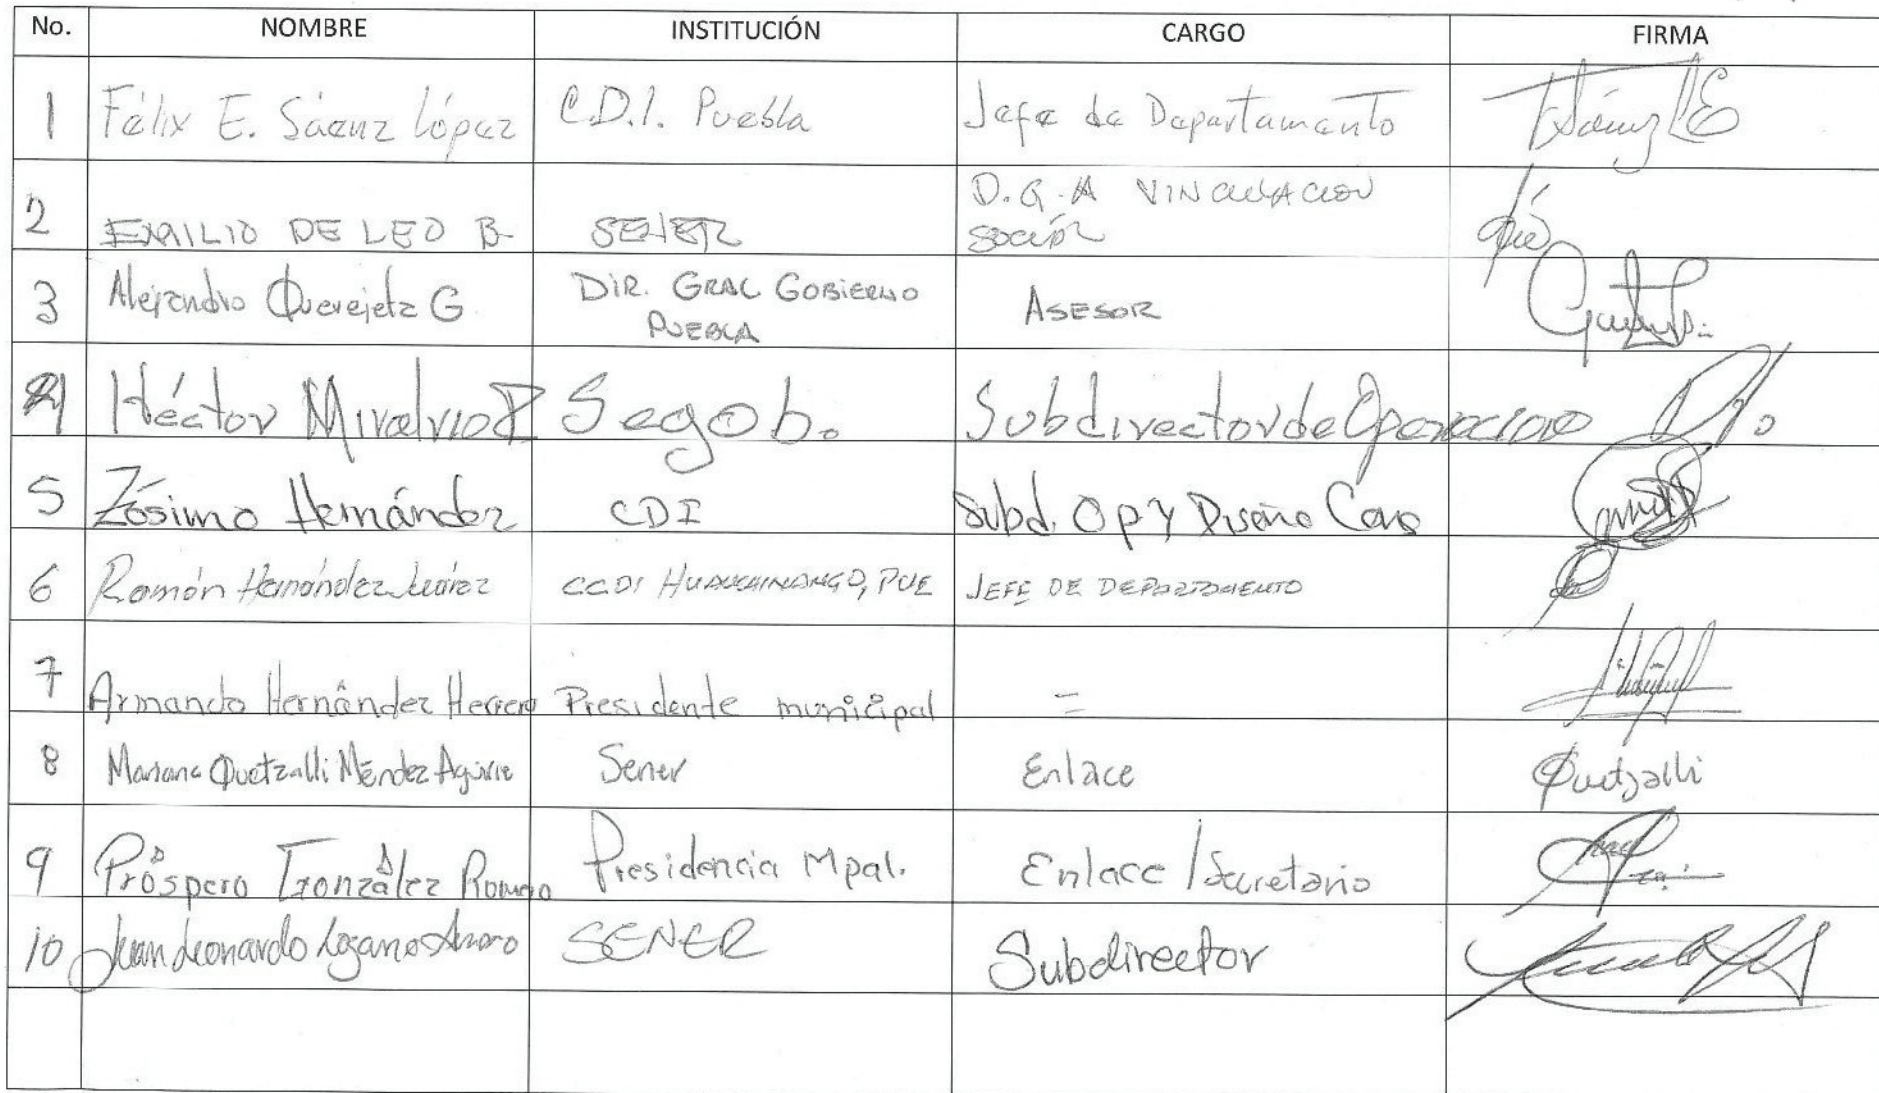 No. NOMBRE INSTITUCIÓN CARGO FIRMA
1 Félix E. Sáenz López C.D.I. Puebla Jefe de Departamento
D.G.A VINCULACION
2 EMILIO DE LEO B. SENER SOCIAL
3 Alejandro Querejeta G. DIR. GRAL GOBIERNO ASESOR
PUEBLA
4 Héctor Miralrio Segob. Subdirector de
5 Zósimo Hernández CDI Subd. Op y Diseño Cons
6 Román Hernández Juárez CCDI HUAUCHINANGO, PUE JEFE DE DEPARTAMENTO
7 Armando Hernández Herrera Presidente municipal =
8 Mariana Quetzalli Méndez Aguirre Sener Enlace Quetzalli
9 Próspero González Romero Presidencia Mpal. Enlace/Secretario
10 Juan Leonardo Lozano SENER Subdirector